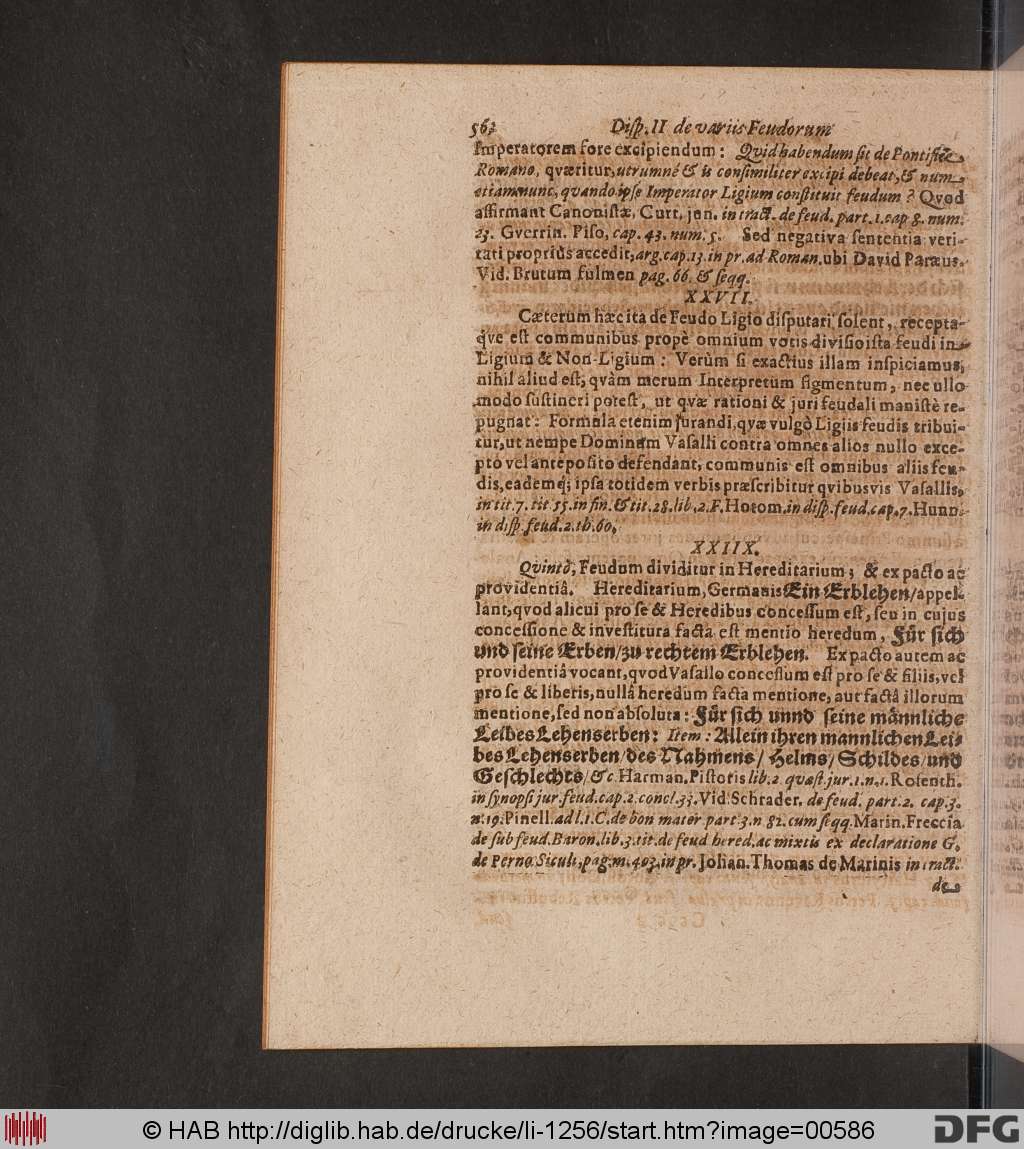 562 Disp. II de variis Feudorum
Imperatorem fore excipiendum: Qvid habendum sit de Pontifice
Romano, qværitur, utrumnè & is consimiliter excipi debeat, & num
etiamnunc, qvando ipse Imperator Ligium constituit feudum? Qvod
affirmant Canonistæ, Curt. jun. in tract. de feud. part. 1. cap 8. num.
23. Gverrin. Piso, cap. 43. num. 5. Sed negativa sententia veri-
tati propriùs accedit, arg. cap. 13. in pr. ad Roman. ubi David Paræus.
Vid. Brutum fulmen pag. 66. & seqq.
XXVII.
Cæterùm hæc ita de Feudo Ligio disputari solent, recepta-
q́ve est communibus propè omnium votis divisio ista feudi in
Ligium & Non-Ligium: Verùm si exactius illam inspiciamus,
nihil aliud est, qvàm merum Interpretum figmentum, nec ullo
modo sustineri potest, ut qvæ rationi & juri feudali manistè re-
pugnat: Formula etenim jurandi, qvæ vulgò Ligiis feudis tribui-
tur, ut nempe Dominum Vasalli contra omnes alios nullo exce-
pto vel anteposito defendant, communis est omnibus aliis feu-
dis, eademq; ipsa totidem verbis præscribitur qvibusvis Vasallis,
in tit. 7. tit. 55. in fin. & tit. 28. lib. 2. F. Hotom. in disp. feud. cap. 7. Hunn.
in disp. feud. 2. th. 60.
XXIIX.
Qvintò, Feudum dividitur in Hereditarium; & ex pacto ac
providentiâ. Hereditarium, Germanis Ein Erblehen/ appel-
lant, qvod alicui pro se & Heredibus concessum est, seu in cujus
concessione & investitura facta est mentio heredum, Für sich
und seine Erben/ zu rechtem Erblehen. Ex pacto autem ac
providentiâ vocant, qvod Vasallo concessum est pro se & filiis, vel
pro se & liberis, nullâ heredum facta mentione, aut factâ illorum
mentione, sed non absoluta: Für sich unnd seine männliche
Leibes Lehenserben: Item: Allein ihren mannlichen Lei-
bes Lehenserben/ des Nahmens/ Helms/ Schildes/ und
Geschlechts/ &c. Harman. Pistoris lib. 2. qvæst. jur. 1. n. 1. Rosenth.
in synopsi jur. feud. cap. 2. concl. 33. Vid. Schrader. de feud. part. 2. cap. 3.
n. 19. Pinell. ad l. 1. C. de bon mater part. 3. n 82. cum seqq. Marin. Freccia
de subfeud. Baron. lib. 3. tit. de feud hered. ac mixtis ex declaratione G.
de Perno Siculi, pag. m. 403. in pr. Johan. Thomas de Marinis in tract.
de
© HAB http://diglib.hab.de/drucke/li-1256/start.htm?image=00586
DFG